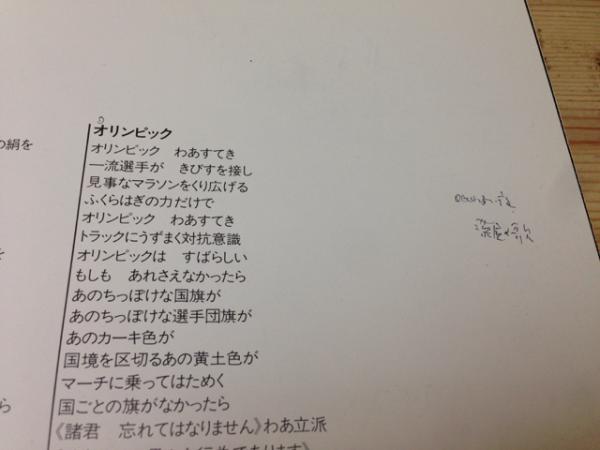 の絹を
オリンピック
オリンピック　わあすてき
一流選手が　きびすを接し
見事なマラソンをくり広げる
ふくらはぎの力だけで
オリンピック　わあすてき
トラックにうずまく対抗意識
オリンピックは　すばらしい
もしも　あれさえなかったら
あのちっぽけな国旗が
あのちっぽけな選手団旗が
あのカーキ色が
国境を区切るあの黄土色が
マーチに乗ってはためく
国ごとの旗がなかったら
《諸君　忘れてはなりません》わあ立派
を
ら